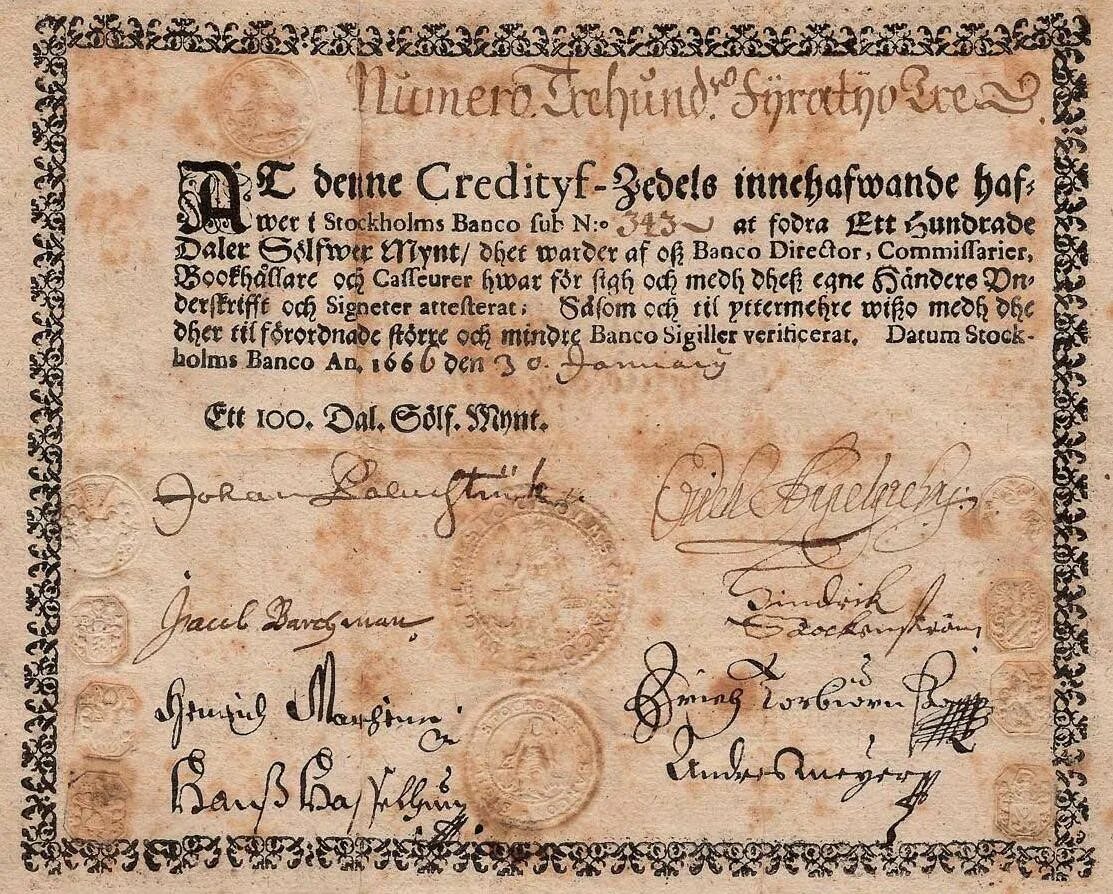 Numero. Trehund. Fyratijo Tre
AT denne Credityf-Zedels innehafwande haf-
wer i Stockholms Banco sub N:o 343 at fodra Ett Hundrade
Daler Sölfwer Mynt/ dhet warder af oß Banco Director, Commissarier,
Bookhållare och Casseurer hwar för sigh och medh dheß egne Händers Vn-
derskrifft och Signeter attesterat; Såsom och til yttermehre wißo medh dhe
dher til förordnade större och mindre Banco Sigiller verificerat. Datum Stock-
holms Banco An. 1666 den 30. January
Ett 100. Dal. Sölf. Mynt.
Johan
Jacob Barchman
Hindrik
Henrich
Erich Torbiörn
Hanß
Andres Meyer